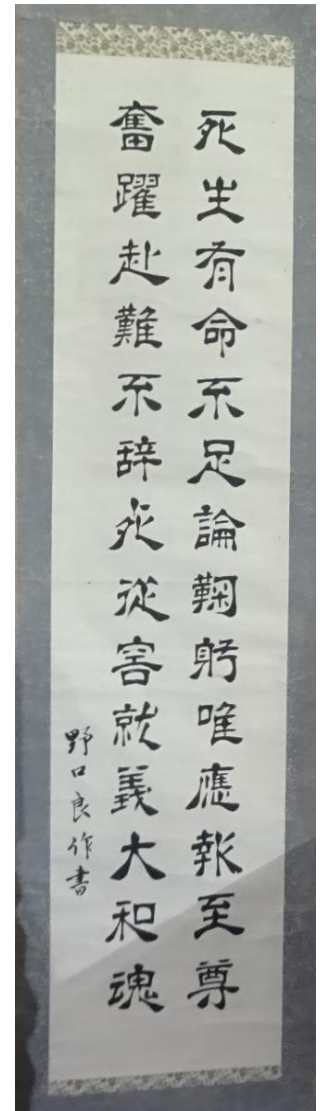 死生有命不足論鞠躬唯應報至尊
奮躍赴難不辞死從容就義大和魂
野口良作書